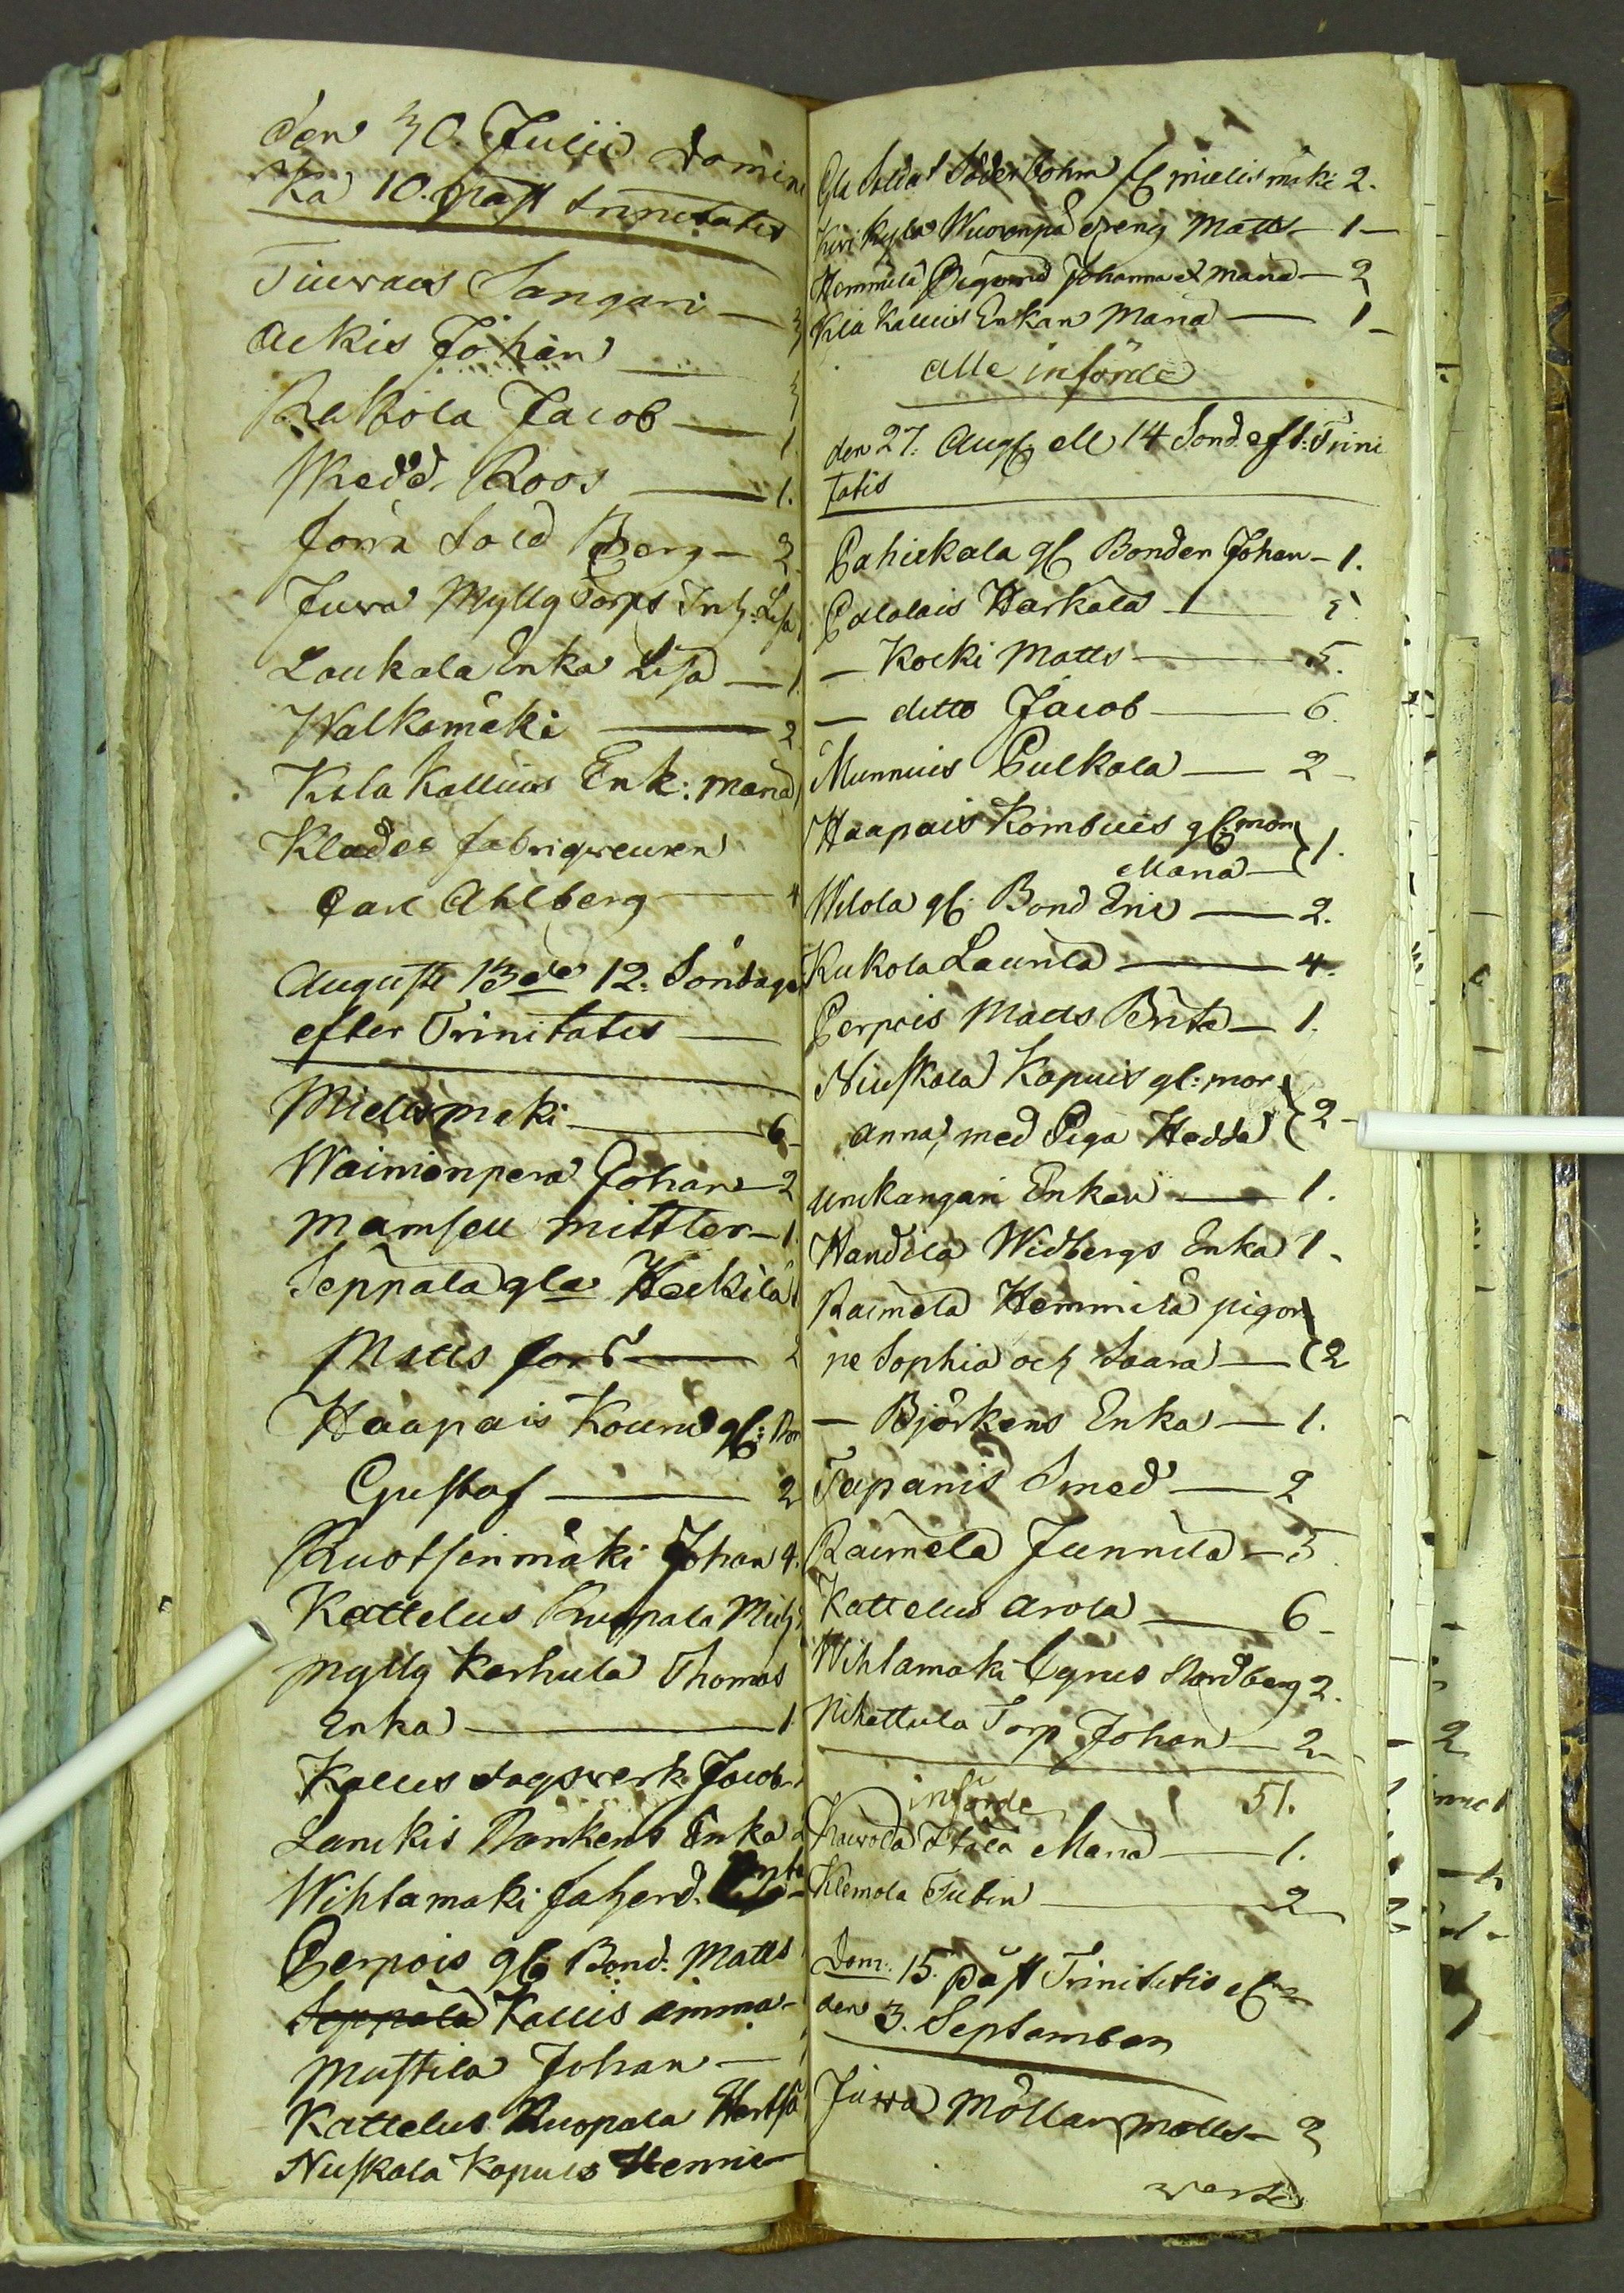 den 30. Julii Domini
ka 10. past Trinitatis
Tiuraus Sangari — 3
Ackis Johan — 3
Rekola Jacob — 1
Skedd. Roos — 1.
Jorra Sold Berg — 2.
Juwa Myllg Torps Inh: Lisa
Laukala Enka Lisa — 1
Walkamäki — 2
Kola Kallius Enk: Maria
Klades fabriqueuren
Carl Ahlberg — 4
Augusti 13de 12. Söndagen
efter Trinitatis —
Mielismäki — 6
Wainionpera Johan — 2
Mamsell Mittler — 1.
Seppala gla Heikilä
Matts — 2
Haapais Kouru gl: Bon
Gustaf — 2
Ruotsinmäki Johan 4.
Kattelus Ruopala Mich
Myllg Karhula Thomas
Enka — 1
Kallis dagsverk. Jacob
Laurikis Enka 2
Wihlamaki
Perpois gl: Bond: Matts
Seppala Kallis ämma —
Mustila Johan —
Kattelus Ruopala
Niuskala Kopuis Henric —
Gla Soldat Söderbohm fr mielismäki 2.
Kirikyla Wuorenpä Dreng Matts — 1 —
Hemmila Pigorna Johanna et Maria — 2
Kla Kallius Enkan Maria — 1 —
alle införde
den 27. Aug: ell 14 Sönd. eft: Trini
tatis
Pahickala gl Bonden Johan — 1.
Pallolais Harkala — 5
— Kocki Matts — 5.
— ditto Jacob — 6.
Munnuis Pulkala — 2 —
Haapais Kombuis gl: mor
Maria — 1.
Wilola gl: Bond Eric — 2.
Kukola Laurila — 4.
Perpois Matts Brita — 1.
Niuskala Kopuis gl: mor
anna, med Piga Hedda 2 —
Enkan — 1.
Handila Widbergs Enka 1 —
Raimela Hemmilä pigor
ne Sophia och Saara — 2
— Björkens Enka — 1.
Tapanis Smed — 2
Raimela Junnila — 5.
Kattelus Arola — 6 —
Wihlamaki Cyrus Nordberg 2.
Nihattula Torp Johan — 2
införde 51.
Itälä Maria — 1.
Klemola Tubin — 2
Dom: 15. past Trinitatis
den 3. September
Juwa Möllar Matts — 2